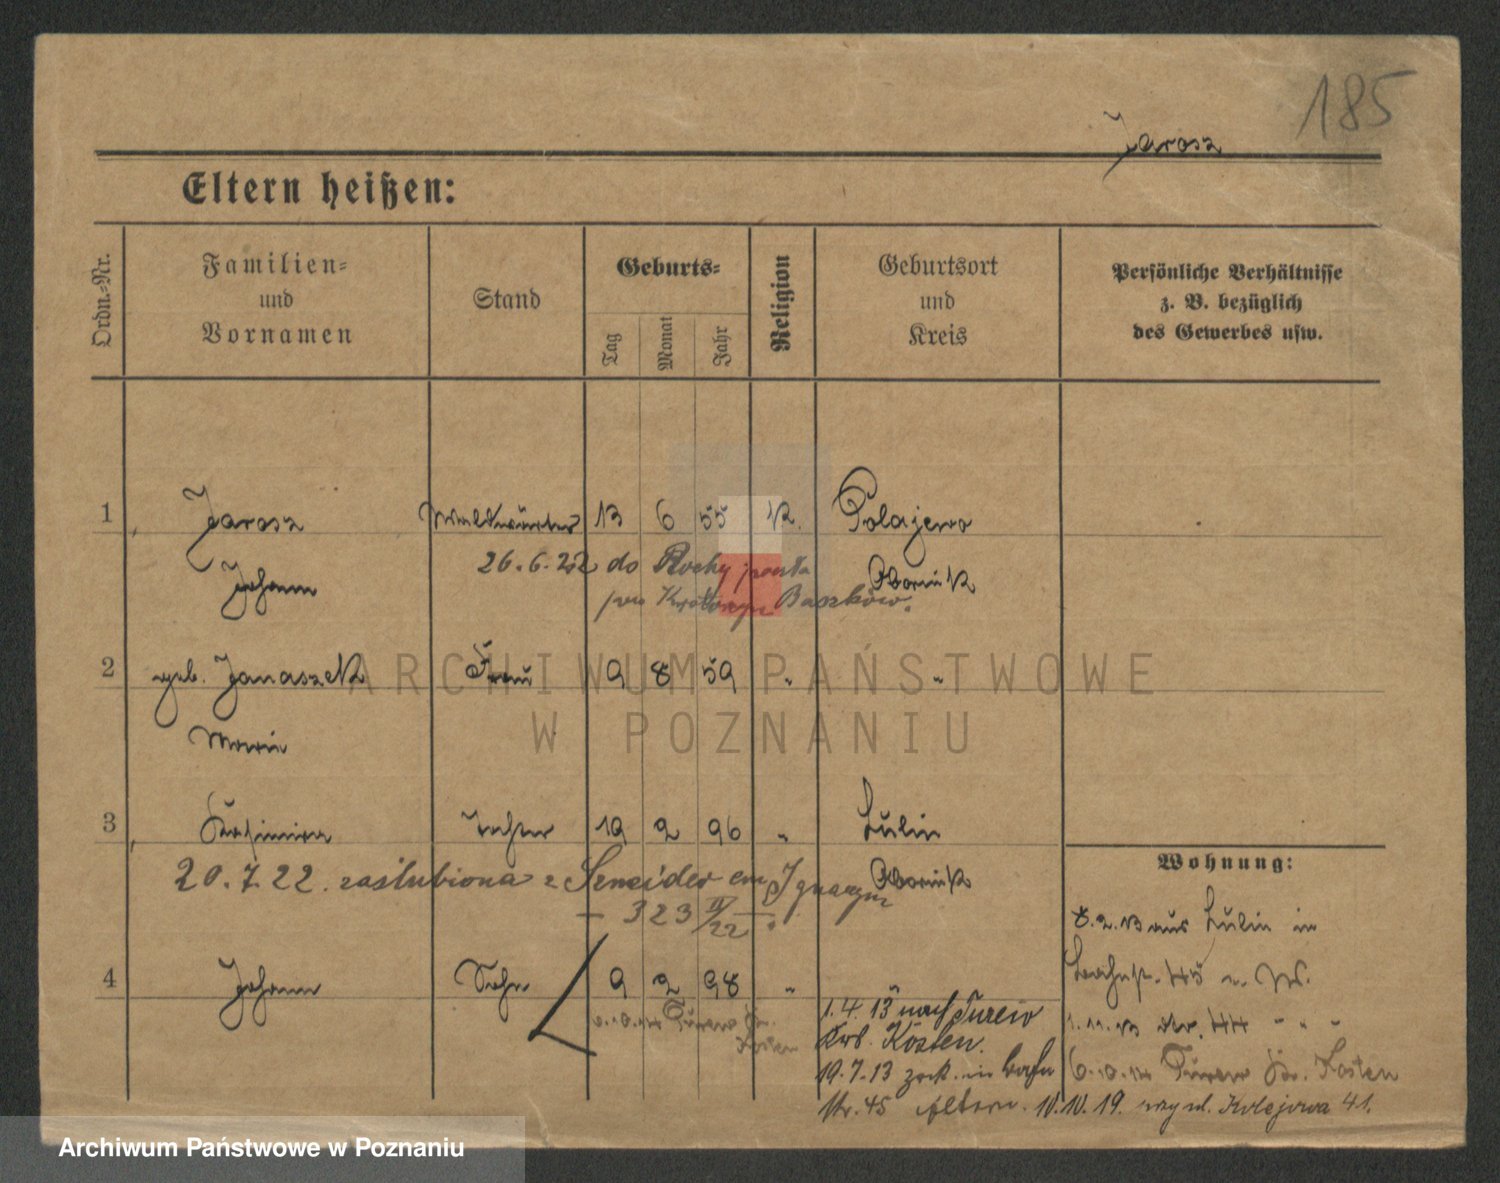 185
Jarosz
Eltern heißen:
Ordn.-Nr.
Familien-
und
Vornamen
Stand
Geburts-
Tag
Monat
Jahr
Religion
Geburtsort
und
Kreis
Persönliche Verhältnisse
z. B. bezüglich
des Gewerbes usw.
1 Jarosz Waldwärter 13 6 55 K. Polajewo
Johann Obornik
26.6.22 do Rochy poczta
pow Krotoszyn Baszków.
2 geb. Janaszek Frau 9 8 59 " "
Maria
3 Kasimira Tochter 19 2 96 " Lulin
Obornik
20.7.22. zaślubiona z Szneider em Ignacym
— 323 II/22 —.
4 Johann Sohn 9 2 98 " "
6.10.14 Turew Kr.
Kosten
1.4.13 nach Turew
Krs. Kosten.
19.7.13 zck. in Bahn
Nr. 45 Eltern. 10.10.19. ul. Kolejowa 41.
Wohnung:
8.2.13 aus Lulin in
Bahnst. 45 W.
1.11.13 Nr. 44 " " "
6.10.14 Turew Kr. Kosten
ARCHIWUM PAŃSTWOWE
W POZNANIU
Archiwum Państwowe w Poznaniu